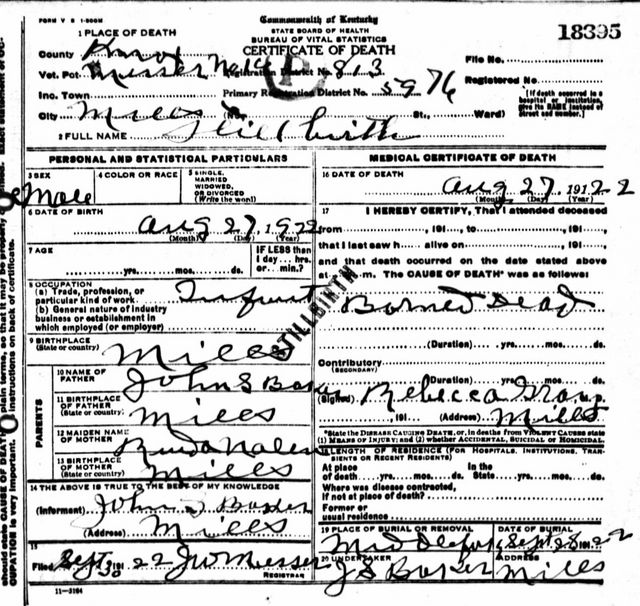 FORM V S 1-500M
Commonwealth of Kentucky
STATE BOARD OF HEALTH
BUREAU OF VITAL STATISTICS
CERTIFICATE OF DEATH
18395
1 PLACE OF DEATH
County Knox
Vot. Pct. Messer No 14 Registration District No. 813
File No.
Inc. Town Primary Registration District No. 5976
Registered No.
City Mills No. St., Ward)
[If death occurred in a hospital or institution, give its NAME instead of street and number.]
2 FULL NAME Still birth
PERSONAL AND STATISTICAL PARTICULARS
MEDICAL CERTIFICATE OF DEATH
3 SEX Male
4 COLOR OR RACE
5 SINGLE, MARRIED WIDOWED, OR DIVORCED (Write the word)
16 DATE OF DEATH Aug 27, 1912 2
(Month) (Day) (Year)
6 DATE OF BIRTH Aug 27 1922
(Month) (Day) (Year)
17 I HEREBY CERTIFY, That I attended deceased
from, 191, to, 191,
that I last saw h alive on, 191,
and that death occurred on the date stated above
at m. The CAUSE OF DEATH* was as follows:
7 AGE yrs. mos. ds.
IF LESS than 1 day hrs. or min.?
8 OCCUPATION
(a) Trade, profession, or particular kind of work Infant
(b) General nature of industry business or establishment in which employed (or employer)
STILLBIRTH
Borned Dead
(Duration) yrs. mos. ds.
9 BIRTHPLACE (State or country) Mills
Contributory (SECONDARY)
(Duration) yrs. mos. ds.
PARENTS
10 NAME OF FATHER John S
11 BIRTHPLACE OF FATHER (State or country) Mills
12 MAIDEN NAME OF MOTHER
13 BIRTHPLACE OF MOTHER (State or country) Mills
(Signed) Rebecca
191 (Address) Mills
*State the DISEASE CAUSING DEATH, or, in deaths from VIOLENT CAUSES state (1) MEANS OF INJURY; and (2) whether ACCIDENTAL, SUICIDAL or HOMICIDAL
18 LENGTH OF RESIDENCE (FOR HOSPITALS, INSTITUTIONS, TRANSIENTS OR RECENT RESIDENTS)
At place of death yrs. mos. ds. In the State yrs. mos. ds.
Where was disease contracted, if not at place of death?
Former or usual residence
14 THE ABOVE IS TRUE TO THE BEST OF MY KNOWLEDGE
(Informent) John S
(Address) Mills
19 PLACE OF BURIAL OR REMOVAL
DATE OF BURIAL Sept 28 1922
15
Filed Sept 30 191 22 JW Messer
REGISTRAR
20 UNDERTAKER J S
ADDRESS Mills
11-3184
should state CAUSE OF DEATH in plain terms, so that it may be properly
OCCUPATION is very important. instructions on back of certificate.